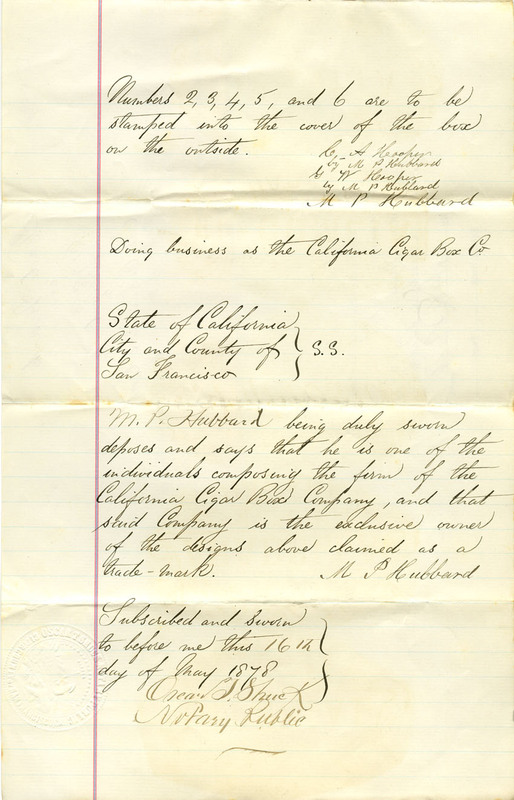 Numbers 2, 3, 4, 5, and 6 are to be
stamped into the cover of the box
on the outside.
A Hooper
by M P Hubbard
W Hooper
by M P Hubbard
M P Hubbard
Doing business as the California Cigar Box Co
State of California
City and County of S.S.
San Francisco
M. P. Hubbard being duly sworn
deposes and says that he is one of the
individuals composing the firm of the
California Cigar Box Company, and that
said Company is the exclusive owner
of the designs above claimed as a
trade-mark. M P Hubbard
Subscribed and sworn
to before me this 16th
day of May 1878
Oscar T. Shuck
Notary Public